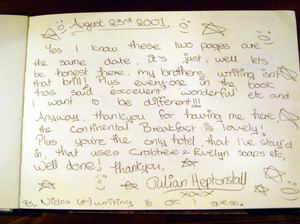 August 23rd 2001
Yes I know these two pages are
the same date, it's just, well lets
be honest there, my brothers writing isn't
that brill! Plus everyone in the book
has said excellent, wonderful etc and
I want to be different!!!
Anyway, thankyou for having me here,
the Continental Breakfast is lovely!
Plus you're the only hotel that I've stay'd
in, that uses Crabtree & Evelyn soaps etc,
Well done! Thankyou,
Julian Heptonstall
xxx
P.S. Nicks writing is OK I guess.